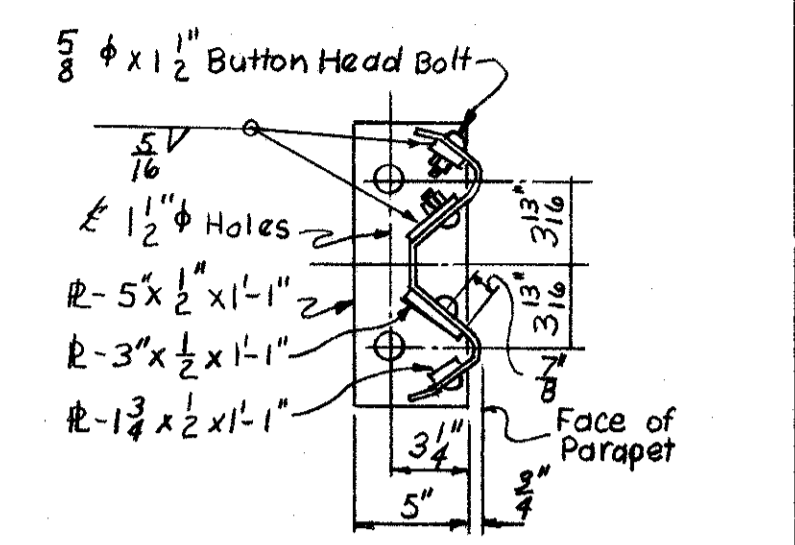 5/8 ϕ x 1 1/2" Button Head Bolt
5/16
℄ 1 1/2" ϕ Holes
PL-5"x 1/2" x1'-1"
PL-3"x 1/2 x1'-1"
PL-1 3/4 x 1/2 x1'-1"
3 13/16"
3 13/16"
7/8"
Face of
Parapet
3 1/4"
5"
3/4"